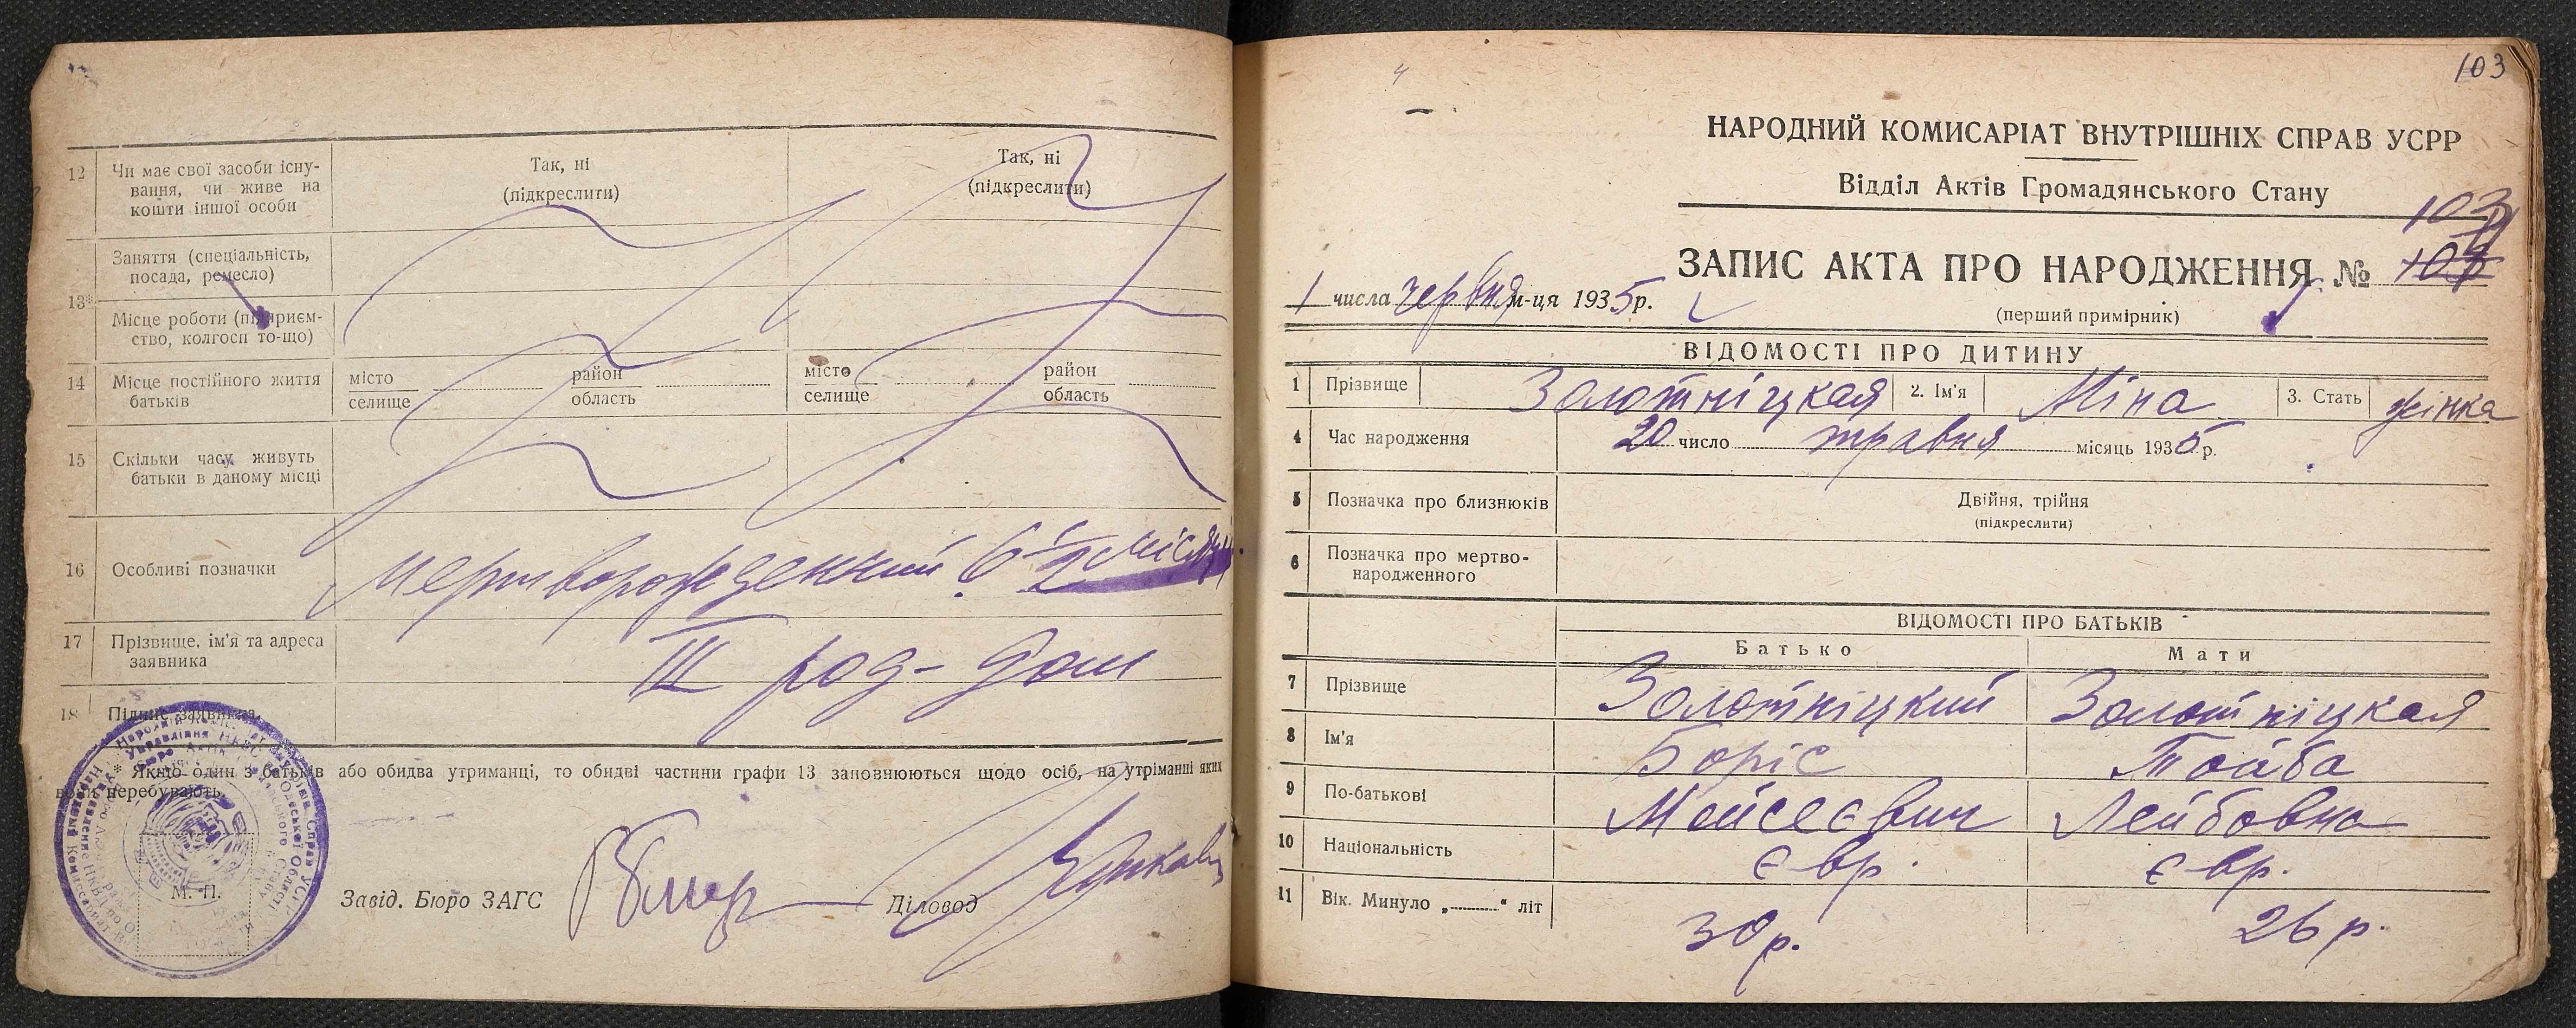 12 Чи має свої засоби існу-
вання, чи живе на
кошти іншої особи
Так, ні
(підкреслити)
Так, ні
(підкреслити)
13*
Заняття (спеціальність,
посада, ремесло)
Місце роботи (підприєм-
ство, колгосп то-що)
14 Місце постійного життя
батьків
місто
селище
район
область
місто
селище
район
область
15 Скільки часу живуть
батьки в даному місці
16 Особливі позначки
мертворожденний. 6 1/2 місяц.
17 Прізвище, ім'я та адреса
заявника
III род-дом
18 Підпис заявника
* Якщо один з батьків або обидва утриманці, то обидві частини графи 13 заповнюються щодо осіб, на утриманні яких
вони перебувають.
М. П.
Завід. Бюро ЗАГС
Діловод
103
НАРОДНИЙ КОМИСАРІАТ ВНУТРІШНІХ СПРАВ УСРР
Відділ Актів Громадянського Стану
103
ЗАПИС АКТА ПРО НАРОДЖЕННЯ №
1 числа червня м-ця 1935 р.
(перший примірник)
ВІДОМОСТІ ПРО ДИТИНУ
1 Прізвище Золотніцкая 2. Ім'я Міна 3. Стать жінка
4 Час народження 20 число травня місяць 1935 р.
5 Позначка про близнюків Двійня, трійня
(підкреслити)
6 Позначка про мертво-
народженного
ВІДОМОСТІ ПРО БАТЬКІВ
Батько Мати
7 Прізвище Золотніцкий Золотніцкая
8 Ім'я Боріс Тойба
9 По-батькові Мойсеєвич Лейбовна
10 Національність Євр. Євр.
11 Вік. Минуло „ “ літ 30 р. 26 р.